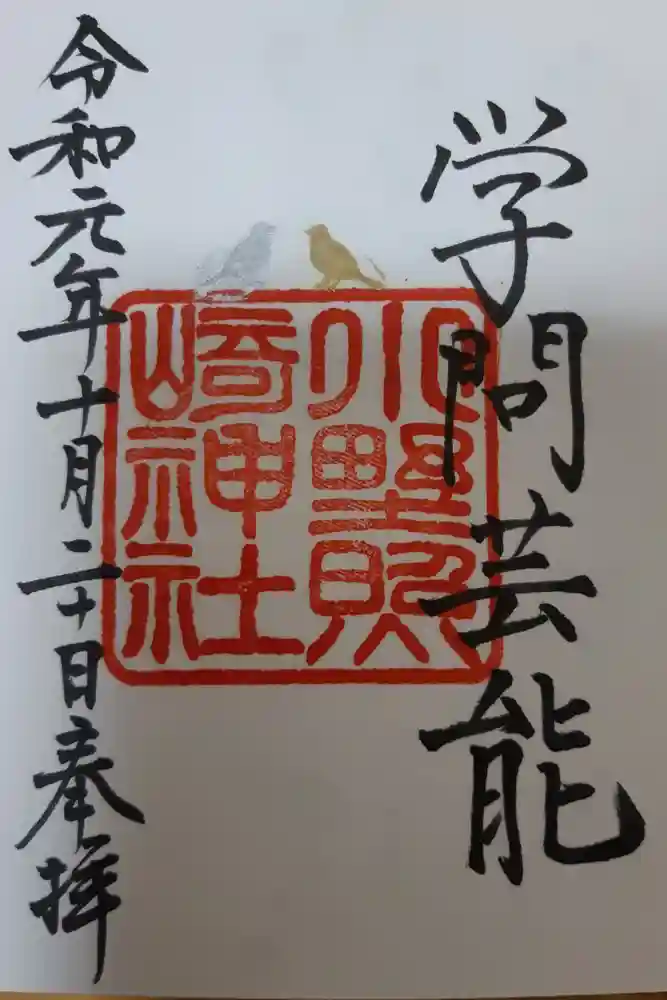 学問芸能
小野照
崎神社
令和元年十月二十日奉拝